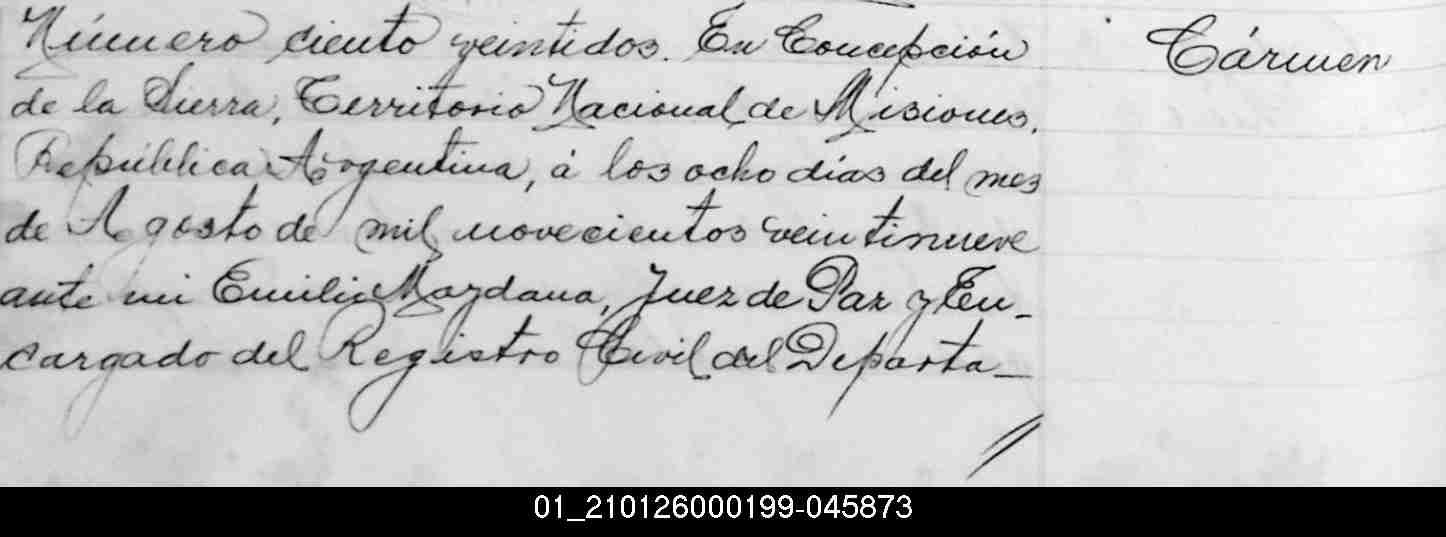 Número ciento veintidos. En Concepción
de la Sierra, Territorio Nacional de Misiones,
República Argentina, á los ocho días del mes
de Agosto de mil novecientos veintinueve
ante mi Emilio Maydana, Juez de Paz y En-
cargado del Registro Civil del Departa-
Cármen
01_210126000199-045873